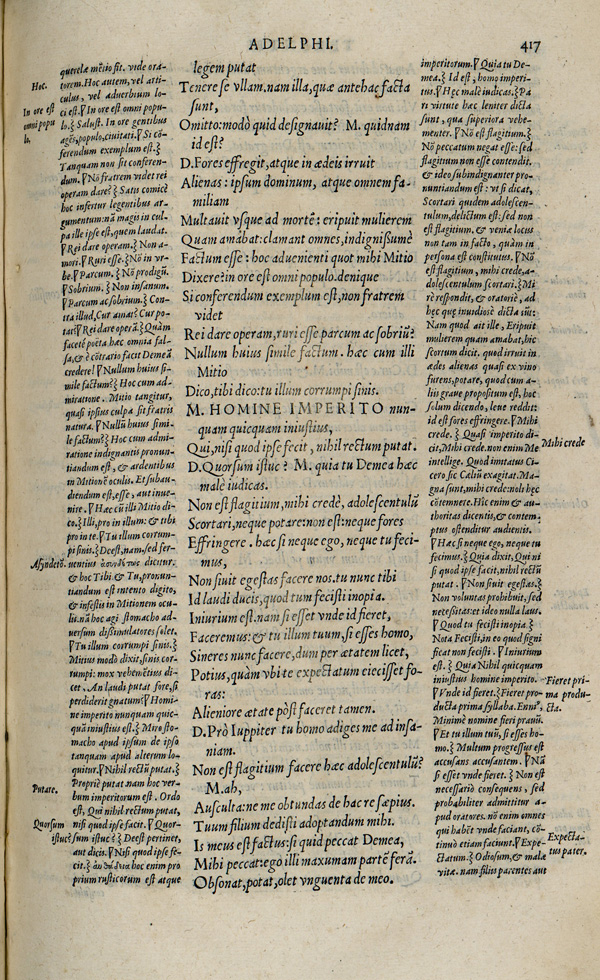 ADELPHI.
417
Hoc.
In ore est
omni popu
lo.
Asyndetō.
Putare.
Quorsum
istuc?
querelæ mētio fit. vide ora-
torem. Hoc autem, vel arti-
culus, vel aduerbium lo-
ci est. ¶ In ore est omni popu-
lo. ⸹ Salust. In ore gentibus
agēs, populo, ciuitati. ¶ Si cō-
ferendum exemplum est. ⸹
Tanquam non sit conferen-
dum. ¶ Nō fratrem videt rei
operam dare? ⸹ Satis comicè
hoc infertur legentibus ar-
gumentum: nā magis in cul-
pa ille ipse est, quem laudat.
¶ Rei dare operam. ⸹ Non a-
mori. ¶ Ruri esse. ⸹ Nō in vr-
be. ¶ Parcum. ⸹ Nō prodigū.
¶ Sobrium. ⸹ Non insanum.
¶ Parcum ac sobrium. ⸹ Con-
tra illud, Cur amat? Cur po-
tat? ¶ Rei dare operā. ⸹ Quàm
facetè poeta hæc omnia fal-
sa, & è cōtrario facit Demeā
credere! ¶ Nullum huius si-
mile factum? ⸹ Hoc cum ad-
miratione. Mitio tangitur,
quasi ipsius culpa sit fratris
natura. ¶ Nullū huius simi-
le factum? ⸹ Hoc cum admi-
ratione indignantis pronun-
tiandum est, & ardentibus
in Mitionē oculis. Et subau-
diendum est, esse, aut inue-
nire. ¶ Hæc cū illi Mitio di-
co. ⸹ Illi, pro in illum: & tibi
pro in te. ¶ Tu illum corrum-
pi sinis. ⸹ Deest, nam, sed fer-
uentius ἀσυνδέτως dicitur.
& hoc Tibi & Tu, pronun-
tiandum est intento digito,
& infestis in Mitionem ocu-
lis. nā hoc agi stomacho ad-
uersum dissimulatores solet.
¶ Tu illum corrumpi sinis. ⸹
Mitius modò dixit, sinis cor-
rumpi: mox vehemētius di-
cet. An laudi putat fore, si
perdiderit gnatum? ¶ Homi-
ne imperito nunquam quic-
quā iniustius est. ⸹ Miro sto-
macho apud ipsum de ipso
tanquam apud alterum lo-
quitur. ¶ Nihil rectū putat. ⸹
Propriè putat. nam hoc ver-
bum imperitorum est. Ordo
est, Qui nihil rectum putat,
nisi quod ipse facit. ¶ Quor-
sum istuc? ⸹ Deest pertinet,
aut dicis. ¶ Nisi quod ipse fe-
cit. ⸹ hoc enim pro
prium rusticorum est atque
legem putat
Tenere se vllam. nam illa, quæ antehac facta
sunt,
Omitto: modò quid designauit? M. quidnam
id est?
D. Fores effregit, atque in ædeis irruit
Alienas: ipsum dominum, atque omnem fa-
miliam
Multauit vsque ad mortē: eripuit mulierem
Quam amābat: clamant omnes, indignißumè
Factum esse: hoc aduenienti quot mihi Mitio
Dixere? in ore est omni populo. denique
Si conferendum exemplum est, non fratrem
videt
Rei dare operam, ruri esse parcum ac sobriū?
Nullum huius simile factum. hæc cum illi
Mitio
Dico, tibi dico: tu illum corrumpi sinis.
M. HOMINE IMPERITO nun-
quam quicquam iniustius,
Qui, nisi quod ipse fecit, nihil rectum putat.
D. Quorsum istuc? M. quia tu Demea hæc
malè iudicas.
Non est flagitium, mihi credè, adolescentulū
Scortari, neque potare: non est: neque fores
Effringere. hæc si neque ego, neque tu feci-
mus,
Non siuit egestas facere nos. tu nunc tibi
Id laudi ducis, quod tum fecisti inopia.
Iniurium est. nam si esset vnde id fieret,
Faceremus: & tu illum tuum, si esses homo,
Sineres nunc facere, dum per ætatem licet,
Potius, quàm vbi te expectatum eiecisset fo-
ras:
Alieniore ætate pòst faceret tamen.
D. Prò Iuppiter tu homo adiges me ad insa-
niam.
Non est flagitium facere hæc adolescentulū?
M. ah,
Ausculta: ne me obtundas de hac re sæpius.
Tuum filium dedisti adoptandum mihi.
Is meus est factus: si quid peccat Demea,
Mihi peccat: ego illi maxumam partē ferā.
Obsonat, potat, olet vnguenta de meo.
imperitorum. ¶ Quia tu De-
mea. ⸹ Id est, homo imperi-
tus. ¶ Hęc malè iudicas. ⸹ Pa
ri virtute hæc leniter dicta
sunt, qua superiora vehe-
menter. ¶ Nō est flagitium. ⸹
Nō peccatum negat esse: sed
flagitium non esse contendit.
& ideo subindignanter pro-
nuntiandum est: vt si dicat,
Scortari quidem adolescen-
tulum, delictum est: sed non
est flagitium. & venia locus
non tam in facto, quàm in
persona est constitutus. ¶ Nō
est flagitium, mihi crede, a-
dolescentulum scortari. ⸹ Mi
rè respondit, & oratoriè, ad
hęc quę inuidiosè dicta sūt:
Nam quod ait ille, Eripuit
mulierem quam amabat, hic
scortum dicit. quod irruit in
ædes alienas quasi ex vino
furens, potare, quod cum a-
liis graue propositum est, hoc
solum dicendo, leue reddit:
id est fores effringere. ¶ Mihi
crede. ⸹ Quasi imperito di-
cit, Mihi crede. non enim Me
intellige. Quod imitatus Ci-
cero, sic Caliū exagitat. Ma-
gna sunt, mihi crede: noli hęc
cōtemnere. Hic enim & au-
thoritas dicentis, & contem-
ptus ostenditur audientis.
¶ Hæc si neque ego, neque tu
fecimus. ⸹ Quia dixit, Qui ni
si quod ipse facit, nihil rectū
putat. ¶ Non siuit egestas. ⸹
Non voluntas prohibuit, sed
necessitas: et ideo nulla laus.
¶ Quod tu fecisti inopia? ⸹
Nota Fecisti, in eo quod signi
ficat non fecisti. ¶ Iniurium
est. ⸹ Quia Nihil quicquam
iniustius homine imperito.
¶ Vnde id fieret. ⸹ Fieret pro-
ducta prima syllaba. Ennius,
Minimè nomine fieri prauū.
¶ Et tu illum tuū, si esses ho-
mo. ⸹ Multum progressus est
accusans accusantem. ¶ Nā
si esset vnde fieret. ⸹ Non est
necessariò consequens, sed
probabiliter admittitur a-
pud oratores. nō enim omnes
qui habēt vnde faciant, cō-
tinuò etiam faciunt. ¶ Expe-
ctatum. ⸹ Odiosum, & malæ
vitæ. nam filius parentes aut
Mihi crede
Fieret pri-
ma produ-
cta.
Expecta-
tus pater.